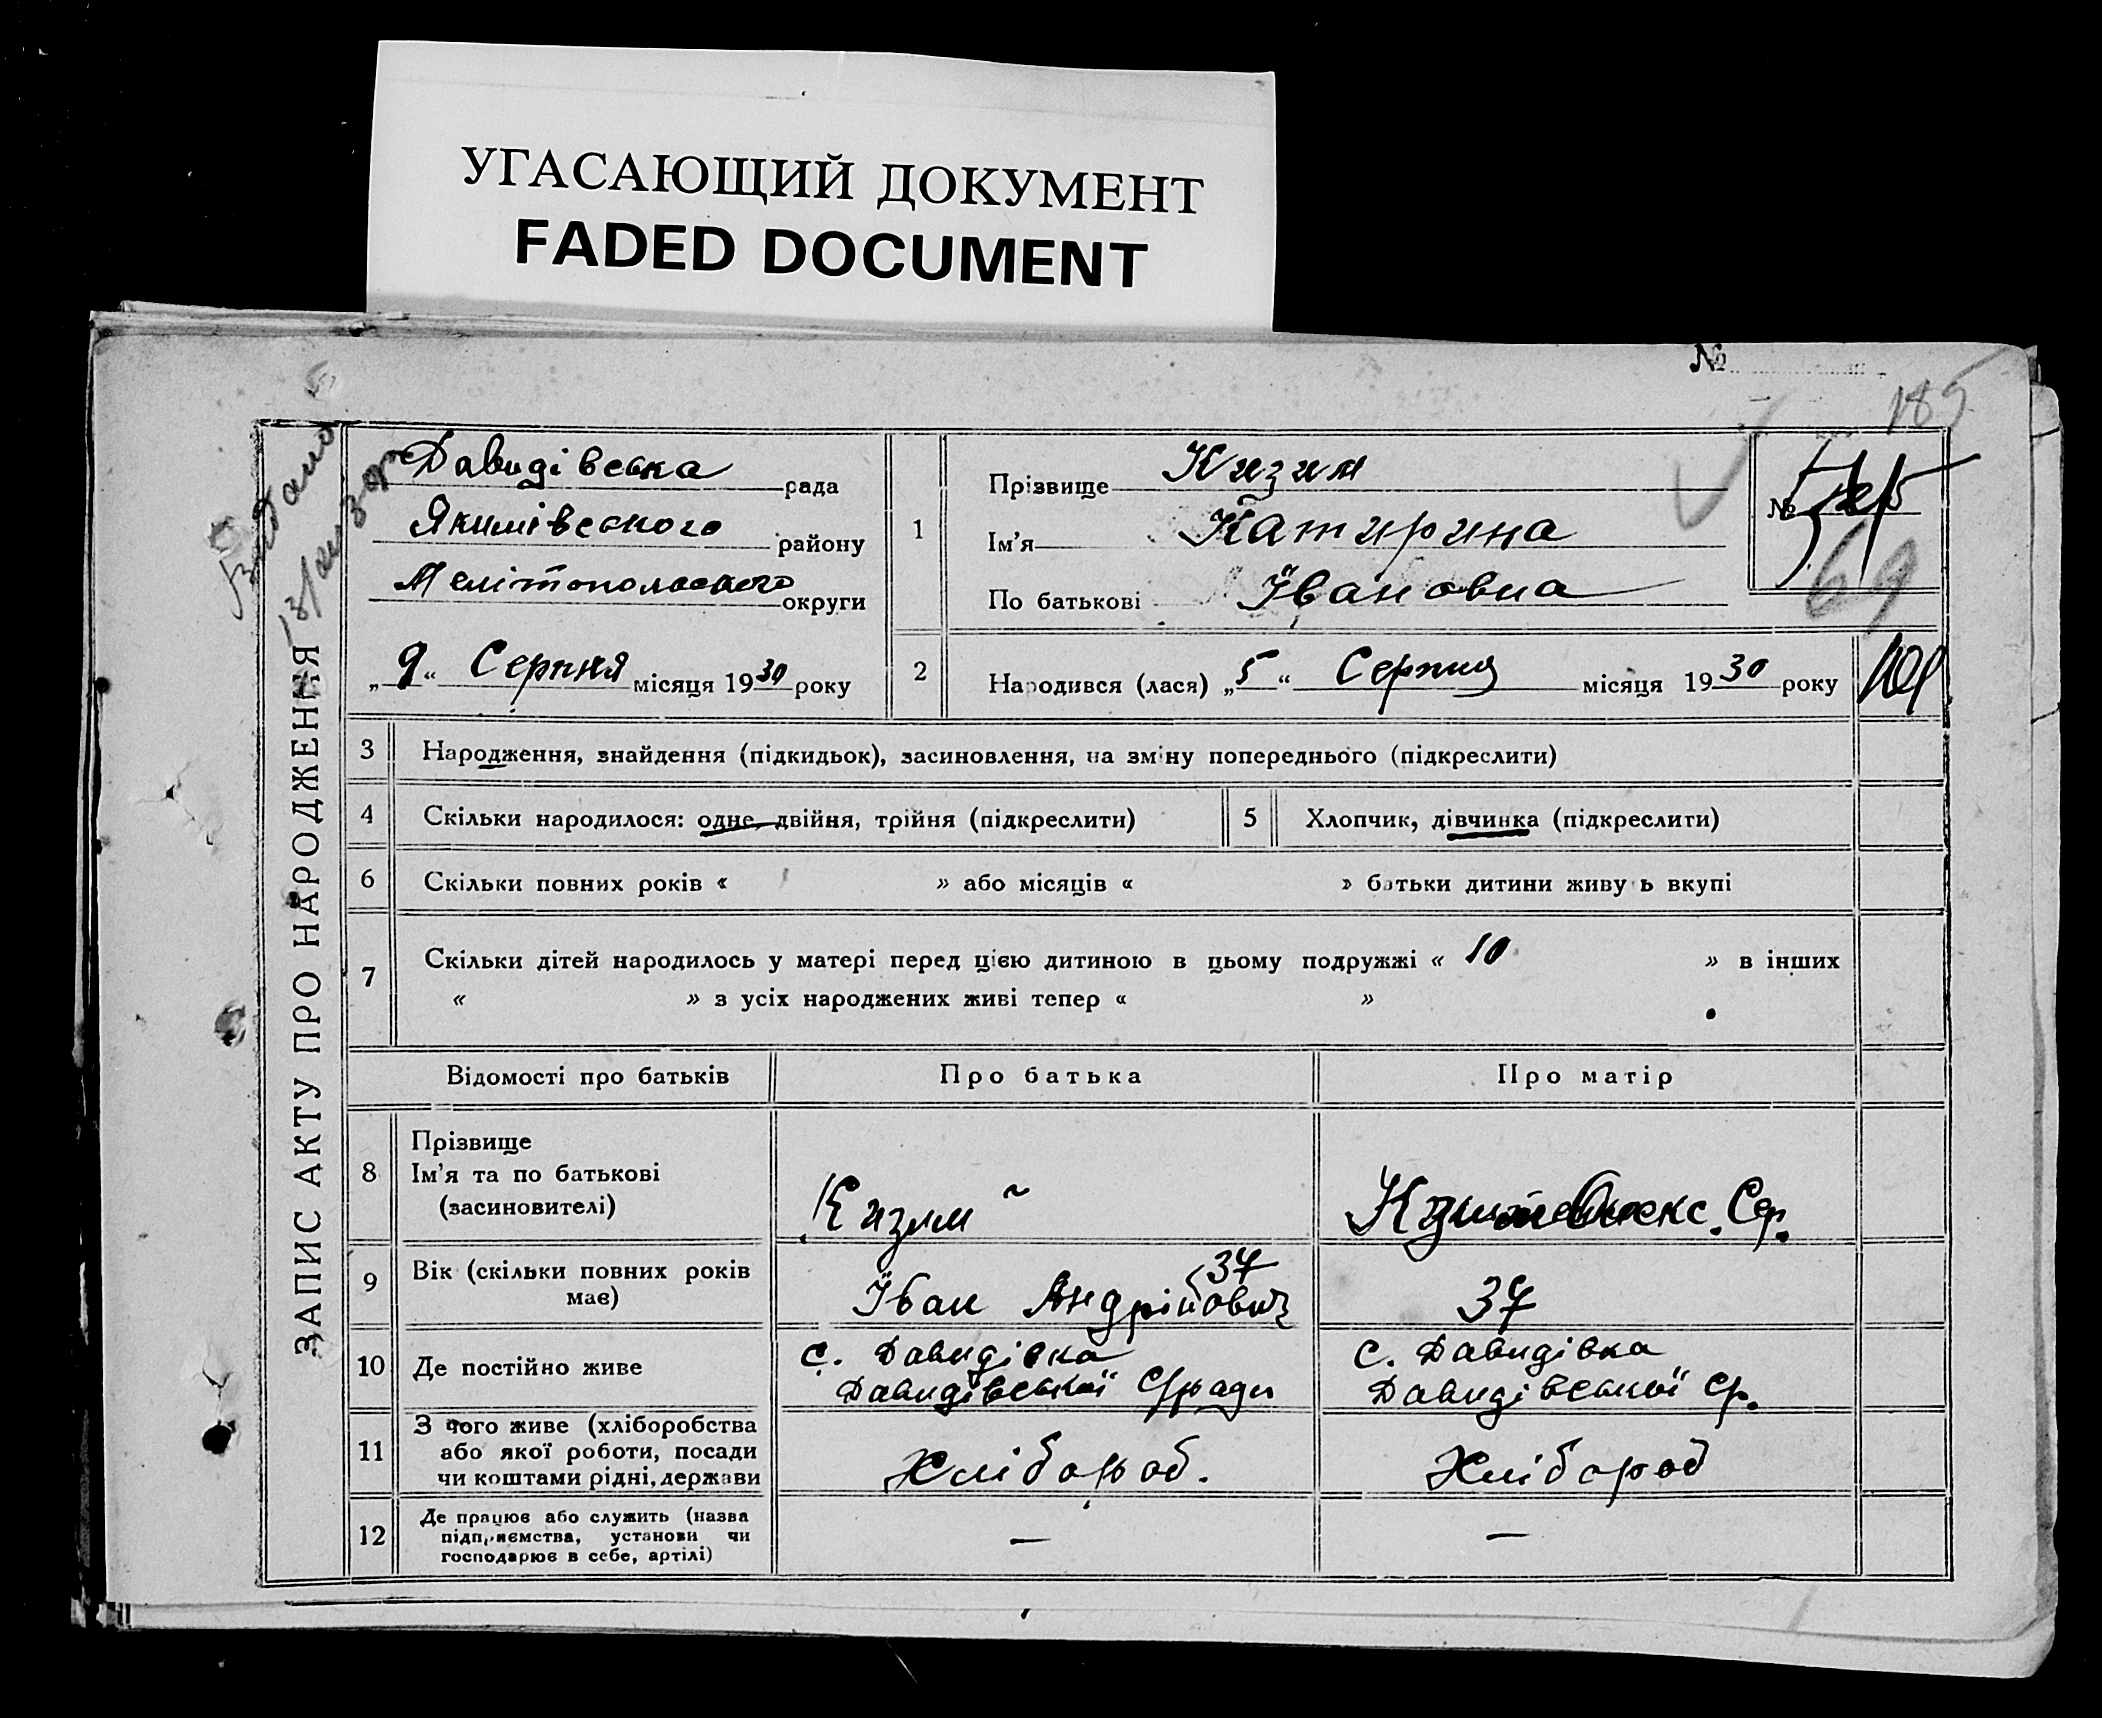 УГАСАЮЩИЙ ДОКУМЕНТ
FADED DOCUMENT
№
185
ЗАПИС АКТУ ПРО НАРОДЖЕННЯ
Видано
Давидівська рада
Якимівського району
Мелітопольського округи
„9“ Серпня місяця 1930 року
1
Прізвище Кизим
Ім'я Катирина
По батькові Івановна
№
69
2
Народився (лася) „5“ Серпня місяця 1930 року
3
Народження, знайдення (підкидьок), засиновлення, на зміну попереднього (підкреслити)
4
Скільки народилося: одне, двійня, трійня (підкреслити)
5
Хлопчик, дівчинка (підкреслити)
6
Скільки повних років « » або місяців « » батьки дитини живуть вкупі
7
Скільки дітей народилось у матері перед цією дитиною в цьому подружжі « 10 » в інших
« » з усіх народжених живі тепер « »
Відомості про батьків
Про батька
Про матір
8
Прізвище
Ім'я та по батькові
(засиновителі)
Кизим
Сер.
9
Вік (скільки повних років
має)
37
Іван Андрійович
37
10
Де постійно живе
с. Давидівка
Давидівської с/ради
с. Давидівка
Давидівської ср.
11
З чого живе (хліборобства
або якої роботи, посади
чи коштами рідні, держави
Хлібороб.
Хлібороб
12
Де працює або служить (назва
підприємства, установи чи
господарює в себе, артілі)
—
—